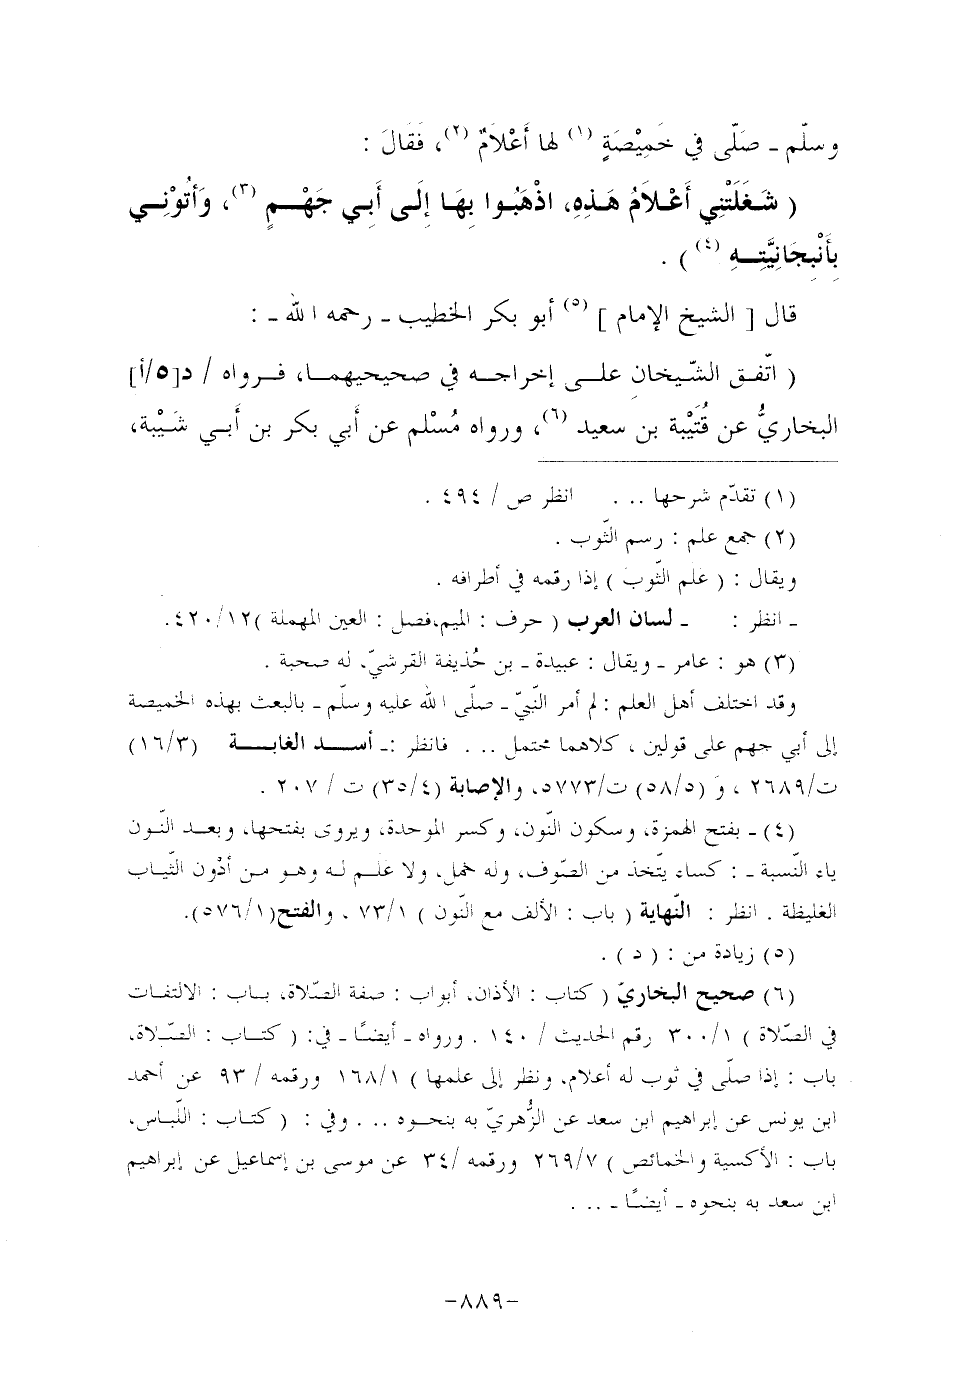 وسلّم ـ صَلّى في خَمِيْصَةٍ (١) لها أَعْلاَمٌ (٢)، فَقَالَ :
( شَغَلَتْنِي أَعْلاَمُ هَذِهِ، اذْهَبُوا بِهَا إِلَى أَبِي جَهْمٍ (٣)، وَأْتُوْنِي
بِأَنْبِجَانِيَّتِهِ (٤) ) .
قال [ الشيخ الإمام ] (٥) أبو بكر الخطيب ـ رحمه الله ـ :
( اتّفق الشّيخان على إخراجه في صحيحيهما، فرواه / د[٥/أ]
البخاريُّ عن قُتَيْبة بن سعيد (٦)، ورواه مُسْلم عن أبي بكر بن أَبي شَيْبة،
(١) تقدّم شرحها .... انظر ص / ٤٩٤ .
(٢) جمع علم : رسم الثّوب .
ويقال : ( علم الثّوب ) إذا رقمه في أطرافه .
ـ انظر : ـ لسان العرب ( حرف : الميم،فصل : العين المهملة )٤٢٠/١٢.
(٣) هو : عامر ـ ويقال : عبيدة ـ بن حُذيفة القرشيّ، له صحبة .
وقد اختلف أهل العلم : لم أمر النّبيّ ـ صلّى الله عليه وسلّم ـ بالبعث بهذه الخميصة
إلى أبي جهم على قولين ، كلاهما محتمل .... فانظر :ـ أسد الغابة (١٦/٣)
ت/٢٦٨٩ ، وَ (٥٨/٥) ت/٥٧٧٣، والإصابة (٣٥/٤) ت / ٢٠٧ .
(٤) ـ بفتح الهمزة، وسكون النّون، وكسر الموحدة، ويروى بفتحها، وبعد النّون
ياء النّسبة ـ : كساء يتّخذ من الصّوف، وله خمل، ولا علم له وهو من أدْون الثّياب
الغليظة . انظر : النّهاية ( باب : الألف مع النّون ) ٧٣/١ ، والفتح(٥٧٦/١).
(٥) زيادة من : ( د ) .
(٦) صحيح البخاريّ ( كتاب : الأذان، أبواب : صفة الصّلاة، باب : الالتفات
في الصّلاة ) ٣٠٠/١ رقم الحديث / ١٤٠ . ورواه ـ أيضًا ـ في: ( كتاب : الصّلاة،
باب : إذا صلّى في ثوب له أعلام، ونظر إلى علمها ) ١٦٨/١ ورقمه / ٩٣ عن أحمد
ابن يونس عن إبراهيم ابن سعد عن الزُّهريّ به بنحوه .... وفي : ( كتاب : اللّباس،
باب : الأكسية والخمائص ) ٢٦٩/٧ ورقمه /٣٤ عن موسى بن إسماعيل عن إبراهيم
ابن سعد به بنحوه ـ أيضًا ـ ....
-٨٨٩-